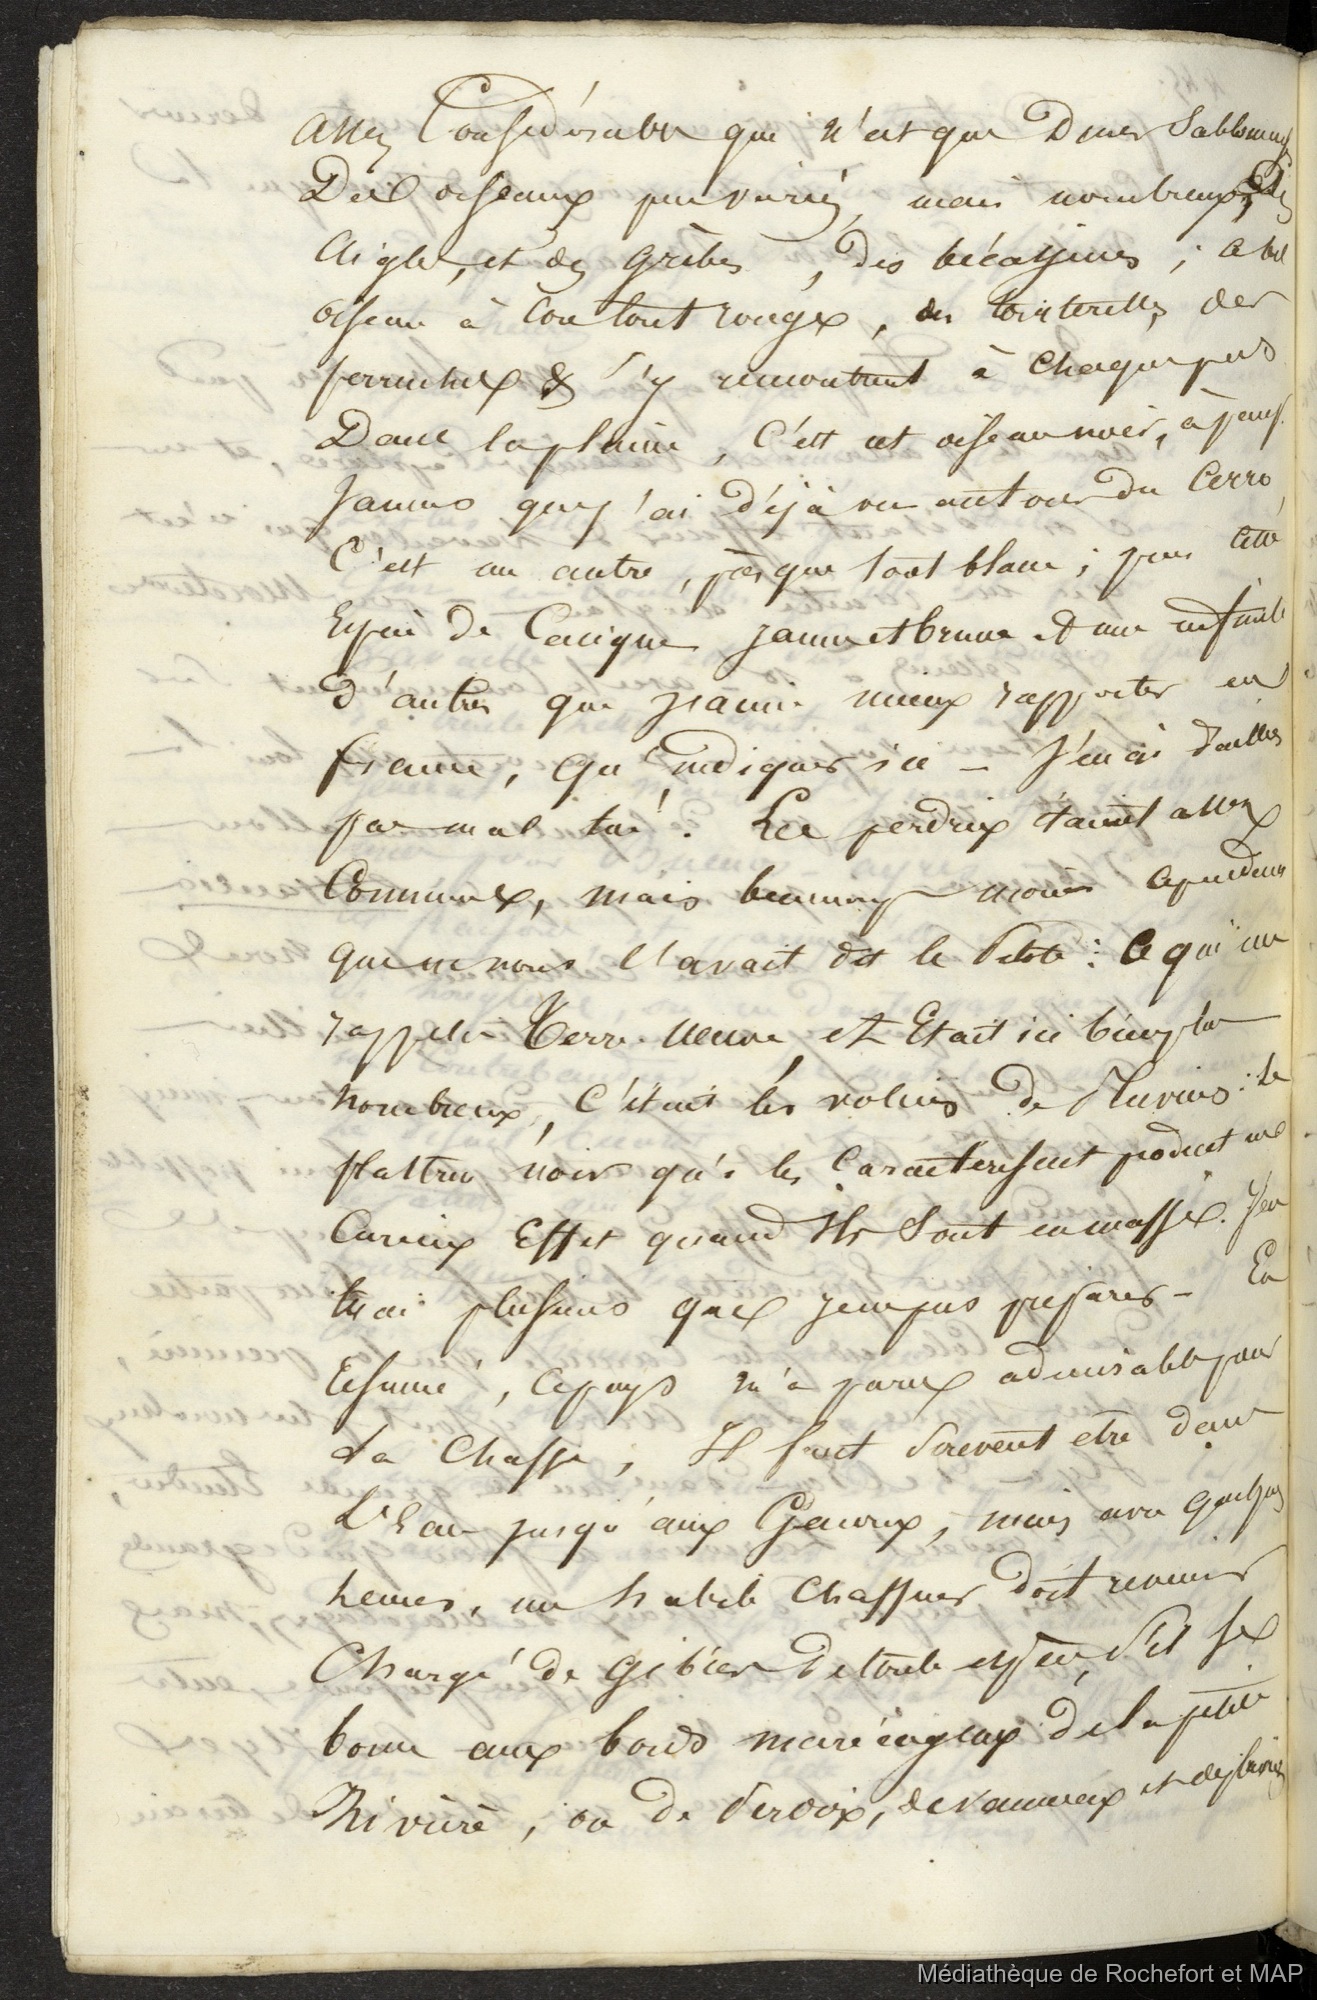 assez Considérable qui n'est que Dunes Sabloneuses
Des oiseaux peu variés, mais nombreux, Des
Aigles, et des grèbes, des bécassines ; ce bel
oiseau à Cou tout rouge, des tourterelles, des
perruches & s'y rencontrent à chaque pas
Dans la plaine, C'est cet oiseau noir, à
jaunes que j'ai déjà vu autour du Cerro,
C'est un autre, presque tout blanc ; puis cette
Espèce de Cacique jaune et brune et une infinité
d'autres que j'aime mieux rapporter en
france, qu'indiquer ici _ J'en ai d'ailleurs
pas mal tué. Les perdrix étaient assez
Communes, mais beaucoup moins cependant
que ne nous l'avait dit le Pilote : Ce qui me
rappela Terre-Neuve et Etait ici bien plus
nombreux, C'étaient les voliers de Pluviers : le
plastron noir qui les Caractérisent produit un
Curieux Effet quand Ils Sont en masse. J'en
tuai plusieurs que je ne pus préparer _ En
résumé, ce pays m'a paru admirable pour
La Chasse, Il faut Souvent être dans
L'Eau jusqu'aux Genoux, mais avec quelques
heures, un habile chasseur doit revenir
Chargé de gibier De toute espèce, S'il se
borne aux bords marécageux de la petite
Rivière, ou de vanneaux et de pluviers
Médiathèque de Rochefort et MAP